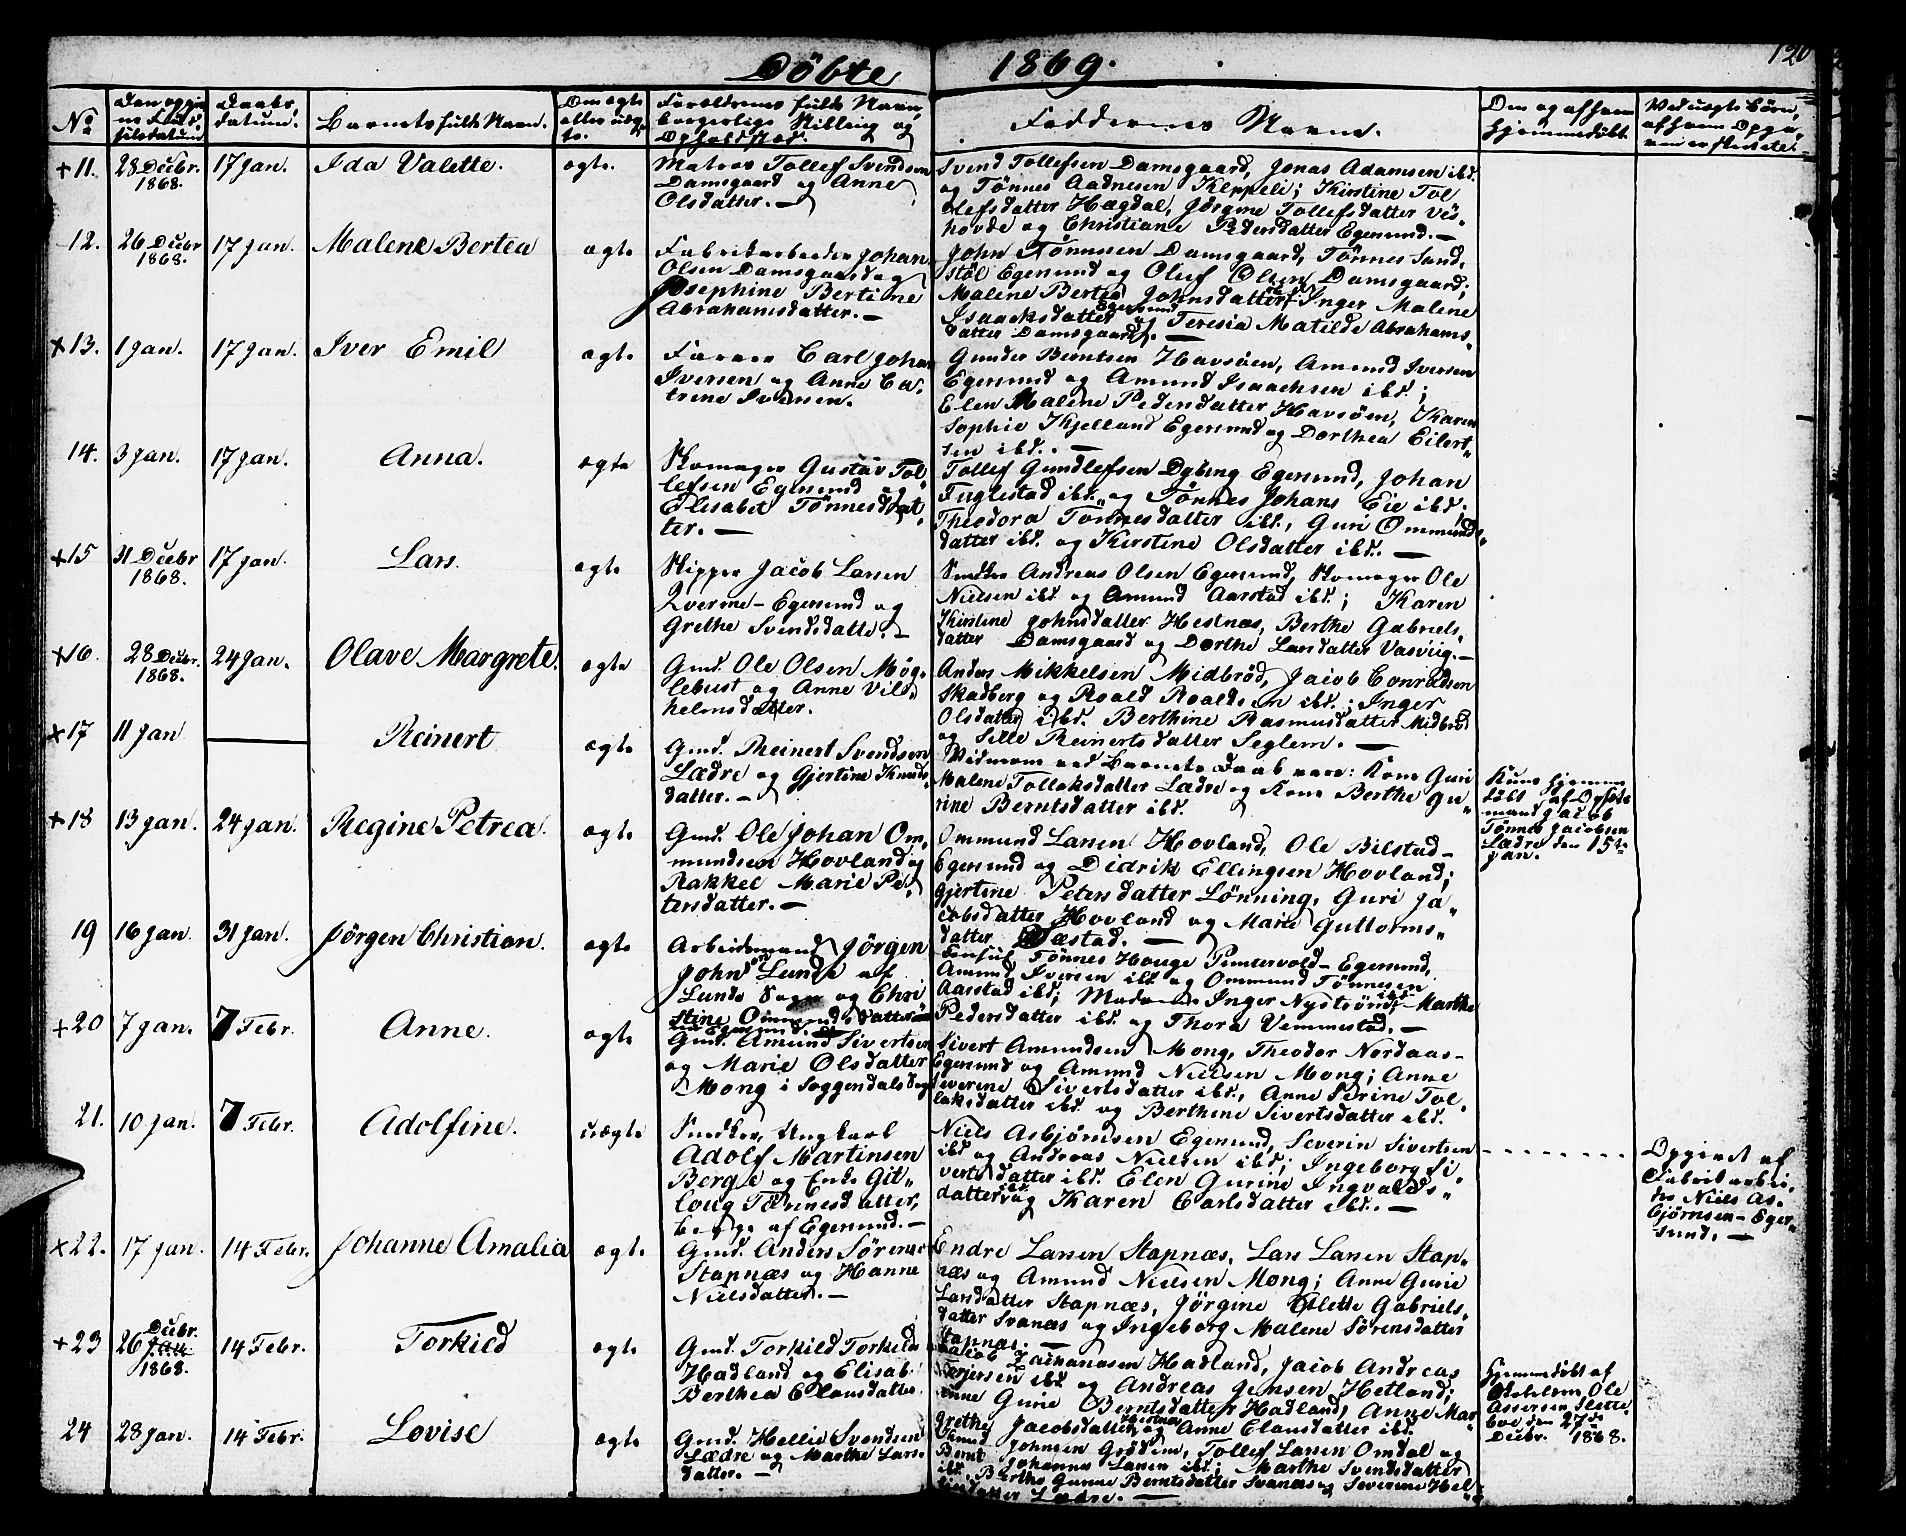 Döbte 1869. 120
No
Den opgivne Fødselsdatum.
Daabsdatum.
Barnets fulde Navn.
Om ægte eller uægte.
Forældrenes fulde Navn, borgerlige Stilling og Opholdssted.
Faddernes Navne.
Om og af hvem hjemmedöbt.
Ved uægte Børn, af hvem Opgaven er
+11. 28 Decbr. 1868. 17 Jan. Ida Valette. ægte.
Matros Tollef Svendsen
Damsgaard og Anne
Olsdatter. —
Svend Tollefsen Damsgaard, Jonas Adamsen ibd.
og Tönnes Aadnesen Kleppeli; Kirstine Tol
lefsdatter Hægdal, Jörgine Tollefsdatter Ves
hovde og Christiane Pedersdatter Egersund. —
12. 26 Decbr 1868. 17 Jan. Malene Bertea ægte
Fabrikarbeider Johan
Olsen Damsgaard og
Josephine Bertine
Abrahamsdatter. —
John Tönnesen Damsgaard, Tönnes Sand,
stöl Egersund og Oluf Olsen Damsgaard;
Malene Bertea Johnsdatter ibd. Inger Malene
Isaacksdatter Egersund og Teresia Matilde Abrahams,
datter Damsgaard. —
x13. 1 Jan. 17 Jan. Iver Emil ægte
Farver Carl Johan
Iversen og Anne Ca,
trine Iversen.
Gunder Berntsen Havsöen, Amund Iversen
Egersund og Amund Isaachsen ibd.;
Elen Malene Pedersdatter Havsöen, Karen
Sophie Kjelland Egersund og Dorthea Eilert„
sen ibd. —
14. 3 Jan. 17 Jan. Anna. ægte
Skomager Gustav Tol„
lefsen Egersund og
Elisabet Tönnesdat„
ter. —
Tollef Gundlefsen Dybing Egersund, Johan
Fuglestad ibd. og Tönnes Johans Eie ibd.
Theodora Tönnesdatter ibd., Guri Ommunds„
datter ibd. og Kirstine Olsdatter ibd. —
+15 31 Decbr 1868. 17 Jan. Lars. ægte
Skipper Jacob Larsen
Qverme - Egersund og
Grethe Svendsdatter. —
Snedker Andreas Olsen Egersund, Skomager Ole
Nielsen ibd. og Amund Aarstad ibd.; Karen
Kirstine Johnsdatter Hestnæs, Berthe Gabriels,
datter Damsgaard og Dorthe Larsdatter Vasvig. —
x16. 28 Decbr. 1868. 24 Jan. Olave Margrete. ægte
Gmd. Ole Olsen Mög„
lebust og Anne Vil„
helmsdatter.
Anders Mikkelsen Midbröd, Jacob Conradsen
Skadberg og Roald Roaldsen ibd.; Inger
Olsdatter ibd. Berthine Rasmusdatter Midbröd
og Sille Reinertsdatter Seglem. —
x17 11 Jan — Reinert ægte
Gmd. Reinert Svendsen
Lædre og Gjertine Knuds,
datter. —
Vidnerne ved Barnets Daab vare: Kone Guri
Malene Tollaksdatter Lædre og Kone Berthe Gu„
rine Berntsdatter ibd.
Kun hjemme
döbt af
mand Jacob
Tönnes Jacobsen
Lædre den 15de
Jan.
+18 13 Jan. 24 Jan. Regine Petrea. ægte
Gmd. Ole Johan Om,
mundsen Hovland og
Rakkel Marie Pe,
tersdatter. —
Ommund Larsen Hovland, Ole Bilstad -
Egersund og Didrik Ellingsen Hovland;
Gjertine Petersdatter Lönning, Guri Ja„
cobsdatter Hovland og Marie Guttorms„
datter Sæstad. —
19 16 Jan. 31 Jan. Jörgen Christian. ægte
Arbeidsmand Jörgen
John Lunde af
Lunds Sogn og Chri
stine Ommundsdatter
af Egersund.
Consul Tönnes Houge Puntervold - Egersund,
Amund Iversen ibd. og Ommund Tönnesen
Aarstad ibd.; Madame Inger Nyström ibd. Marthe
Pedersdatter ibd. og Thora Vemmestad. —
+20 7 Jan. 7 Febr. Anne. ægte
Gmd. Amund Sivertsen
og Marie Olsdatter
Mong i Soggendals Sogn
Sivert Amundsen Mong, Theodor Nordaas -
Egersund og Amund Nielsen Mong; Anne
Severine Sivertsdatter ibd., Anne Serine Tol
laksdatter ibd. og Berthine Sivertsdatter ibd.
21. 10 Jan. 7 Febr. Adolfine. uægte
Snedker, Ungkarl
Adolf Martinsen
Berge og Enke Git„
loug Tönnesdatter,
begge af Egersund. —
Niels Asbjörnsen Egersund, Severin Sivertsen
ibd og Andreas Nielsen ibd; Ingeborg Si
vertsdatter ibd. Elen Gurine Ingvalds„
datter ibd. og Karen Carlsdatter ibd. —
Opgivet af
Fabrikarbei,
der Niels As,
björnsen - Eger„
sund. —
x22. 17 Jan. 14 Febr. Johanne Amalia ægte
Gmd. Anders Sörense
Stapnæs og Hanne
Nielsdatter. —
Endre Larsen Stapnæs, Lars Larsen Stap„
næs og Amund Nielsen Mong; Anne Gurie
Larsdatter Stapnæs, Jörgine Olette Gabriels,
datter Svanæs og Ingeborg Malene Sörensdatter
Stapnæs. —
+23 26 Decbr. Jan. 1868. 14 Febr. Torkild ægte
Gmd. Torkild Torkilds
Hadland og Elisab
Berthea Clausdatter
Jacob Zachariasen Hadland, Jacob Andreas
Torjersen ibd og Andreas Jensen Hetland;
Anne Gurie Berntsdatter Hadland, Anne Mar„
grethe Jacobsdatter Hestnæs og Anne Clausdatter ibd.
Hjemmedöbt af
Ole
Assersen Slette
boe den 27de
Decbr. 1868.
24 28 Jan. 14 Febr. Lovise ægte
Gmd. Hellie Svendsen
Lædre og Marthe Lars,
datter. —
Johnsen Grödem, Tollef Larsen Omdal og
Bernt Johannes Larsen ibd.; Marthe Svendsdatter
ibd. Berthe Gunne Berntsdatter Svanæs og Severine Hel„
liesdatter Lædre. —